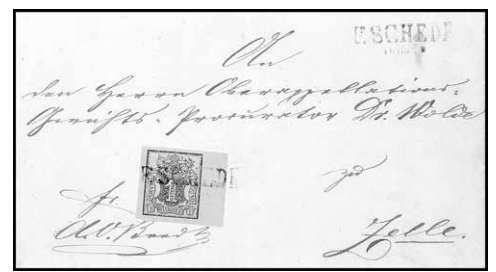 ESCHEDE
An
den Herrn Oberappellations-
Gerichts-Procurator Dr. Wolde
ESCHEDE
zu
fr.
Zelle.